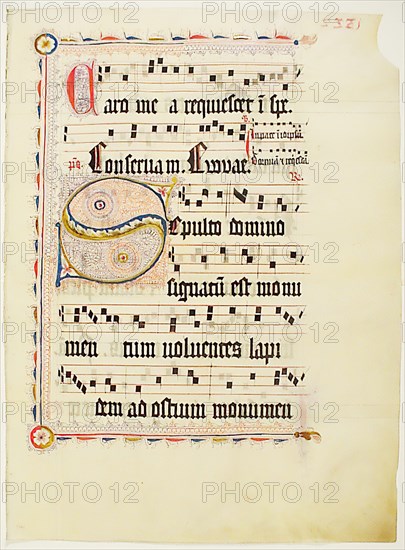 Caro me a requiescet ī spe.
ps̄. Conserva m. Evovae.
In pace ī idipsū
Dormiā ⁊ req̄escā
R.
Sepulto domino
signatū est monu
men tum voluentes lapi
dem ad ostium monumen
PHOTO12